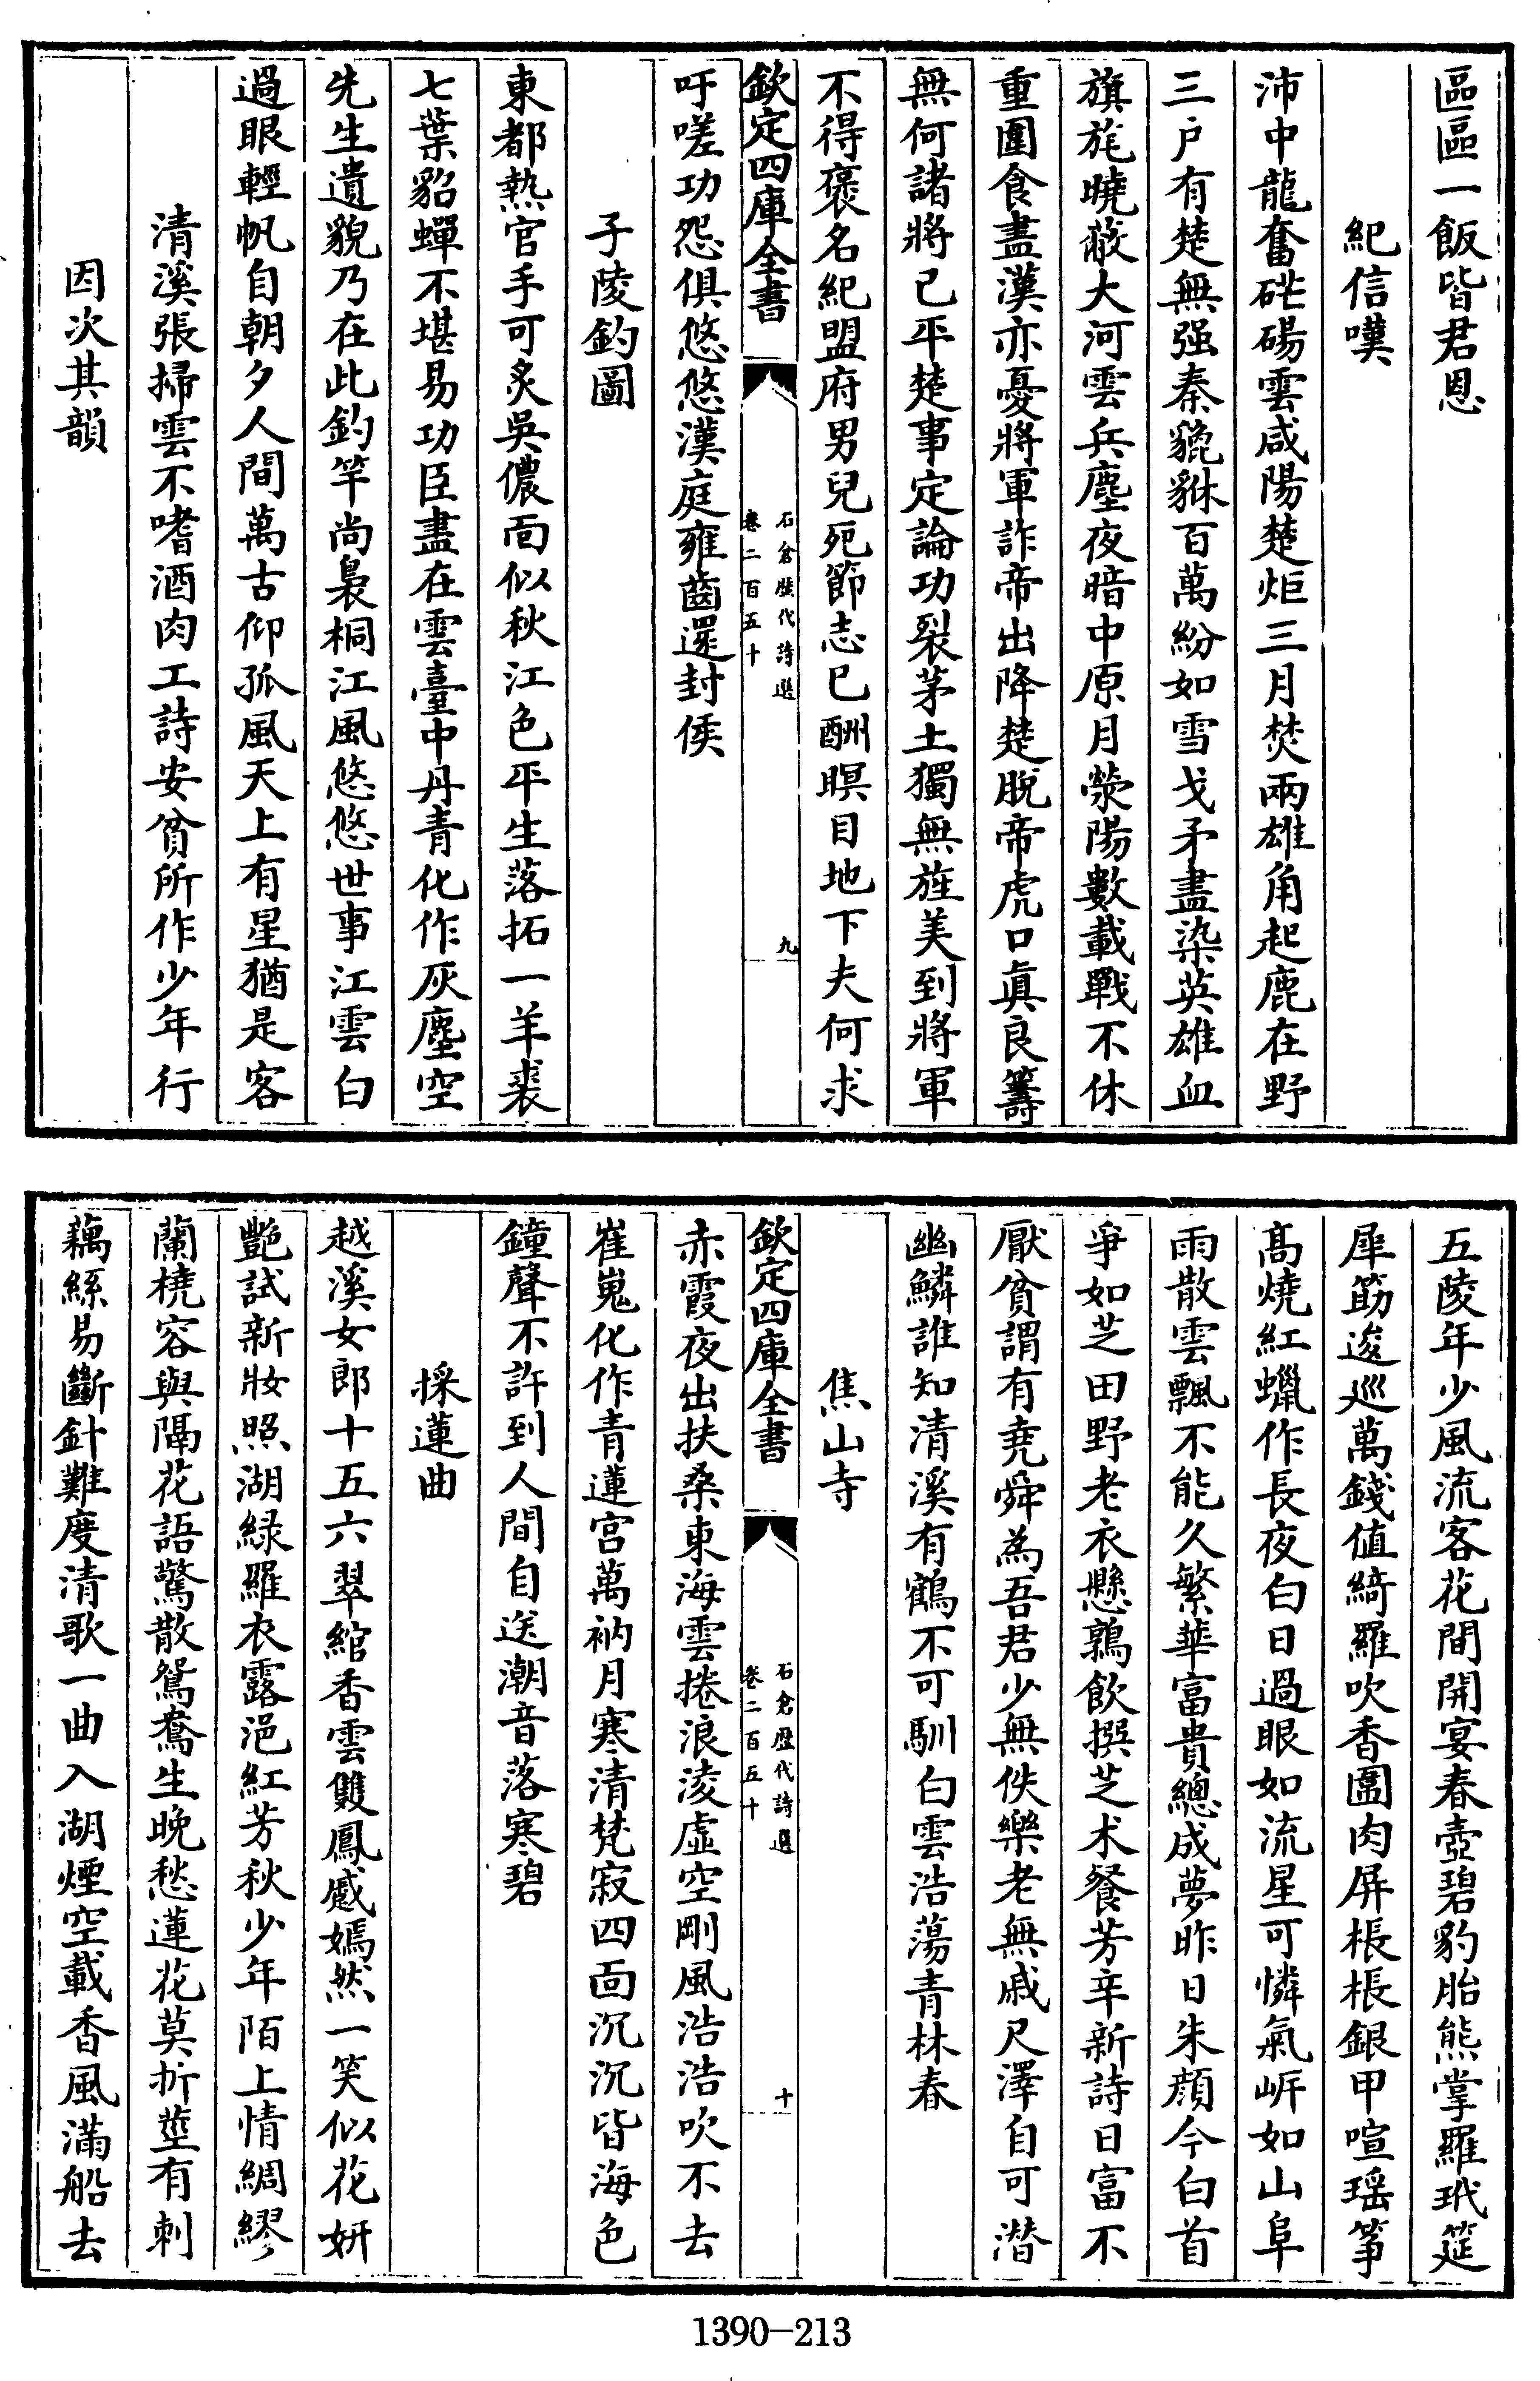 區區一飯皆君恩
紀信嘆
沛中龍奮硭碭雲咸陽楚炬三月焚兩雄角起鹿在野
三户有楚無强秦貔貅百萬紛如雪戈矛盡染英雄血
旗旄曉蔽大河雲兵塵夜暗中原月滎陽數載戰不休
重圍食盡漢亦憂將軍詐帝出降楚脫帝虎口真良籌
無何諸將已平楚事定論功裂茅土獨無旌美到將軍
不得褒名紀盟府男兒死節志已酬瞑目地下夫何求
欽定四庫全書
石倉歷代詩選
卷二百五十
九
吁嗟功怨俱悠悠漢庭雍齒還封侯
子陵釣圖
東都熱官手可炙吳儂面似秋江色平生落拓一羊裘
七葉貂蟬不堪易功臣盡在雲臺中丹青化作灰塵空
先生遺貌乃在此釣竿尚裊桐江風悠悠世事江雲白
過眼輕帆自朝夕人間萬古仰孤風天上有星猶是客
清溪張掃雲不嗜酒肉工詩安貧所作少年行
因次其韻
五陵年少風流客花間開宴春壺碧豹胎熊掌羅玳筵
犀筯逡巡萬錢值綺羅吹香圍肉屏棖棖銀甲喧瑤箏
髙燒紅蠟作長夜白日過眼如流星可憐氣岍如山阜
雨散雲飄不能久繁華富貴總成夢昨日朱顔今白首
爭如芝田野老衣懸鶉飲撰芝朮餐芳辛新詩日富不
厭貧謂有堯舜為吾君少無佚樂老無戚尺澤自可潛
幽鱗誰知清溪有鶴不可馴白雲浩蕩青林春
焦山寺
欽定四庫全書
石倉歷代詩選
卷二百五十
十
赤霞夜出扶桑東海雲捲浪淩虛空剛風浩浩吹不去
崔嵬化作青蓮宮萬衲月寒清梵寂四面沉沉皆海色
鐘聲不許到人間自送潮音落寒碧
採蓮曲
越溪女郎十五六翠綰香雲雙鳳蹙嫣然一笑似花妍
艷試新妝照湖緑羅衣露浥紅芳秋少年陌上情綢繆
蘭橈容與隔花語驚散鴛鴦生晚愁蓮花莫折莖有刺
藕絲易斷針難度清歌一曲入湖煙空載香風滿船去
1390-213